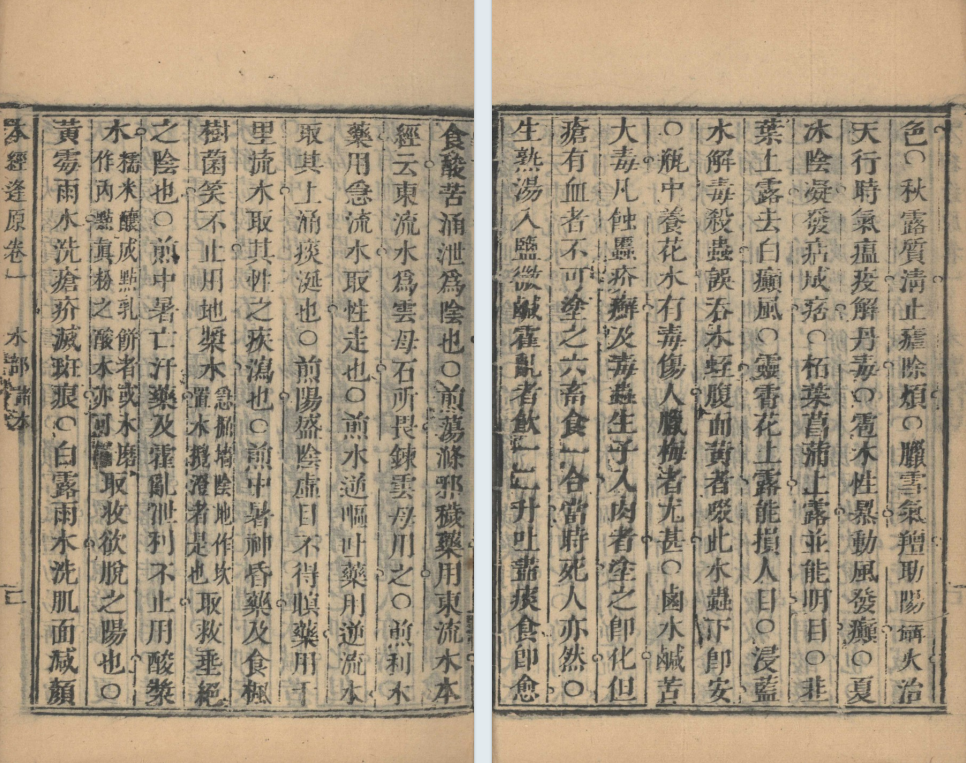 食酸苦涌泄爲陰也○煎蕩滌邪穢藥用東流水本
經云東流水爲雲母石所畏鍊雲母用之○煎利水
藥用急流水取性走也○煎水逆嘔吐藥用逆流水
取其上涌痰涎也○煎陽盛陰虛目不得瞑藥用千
里流水取其性之疾瀉也○煎中暑神昏藥及食楓
樹菌笑不止用地漿水急掘墻陰地作坎置水攪澄者是也取救垂絕
之陰也○煎中暑亡汗藥及霍亂泄利不止用酸漿
水糯米釀成點乳餅者或水磨作內點眞粉之酸水亦可取收欲脫之陽也○
黃霉雨水洗瘡疥滅斑痕○白露雨水洗肌面減顏
本經逢原卷一 水部 諸水
色○秋露質清止瘧除煩○臘雪氣羶助陽爝火治
天行時氣瘟疫解丹毒○雹水性暴動風發癲○夏
冰陰凝發㾬成痞○柘葉菖蒲上露並能明目○韭
葉上露去白癜風○靈香花上露能損人目○浸藍
水解毒殺蟲誤吞水蛭腹而黃者啜此水蟲下卽安
○瓶中養花水有毒傷人臘梅者尤甚○鹵水鹹苦
大毒凡蝕䘌疥癬及毒蟲生子入肉者塗之卽化但
瘡有血者不可塗之六畜食一合當時死人亦然○
生熟湯入鹽微鹹霍亂者飮一二升吐盡痰食卽愈